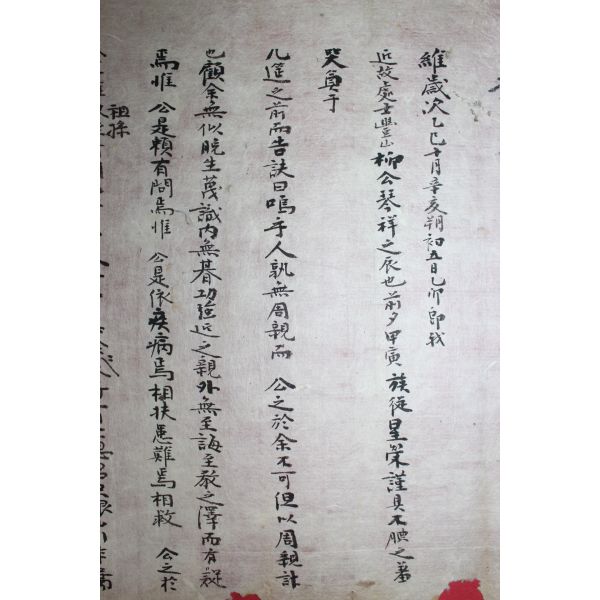 維歲次乙巳十月辛亥朔初五日乙卯卽我
近故處士豊山柳公琴祥之辰也前夕甲寅族從星榮謹具不腆之羞
哭奠于
几筵之前而告訣曰嗚乎人孰無周親而 公之於余不可但以周親計
也顧余無似晩生蔑識內無朞功强近之親外無至誨至敎之澤而有疑
焉惟 公是賴有問焉惟 公是依疾病焉相扶患難焉相救 公之於
祖孫